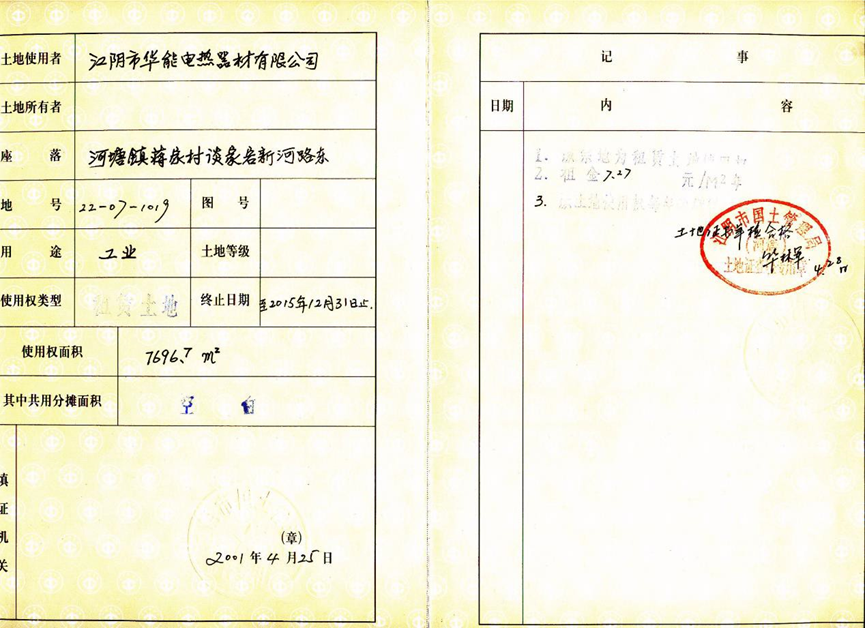 土地使用者 江阴市华能电热器材有限公司
土地所有者
座 落 河塘镇蒋家村谈家岩新河路东
地 号 22-07-1019 图 号
用 途 工业 土地等级
使用权类型 租赁土地 终止日期 至2015年12月31日止.
使用权面积 7696.7 m²
其中共用分摊面积 空 白
填证机关
(章)
2001年4月25日
记 事
日期 内 容
1.
2. 租金7.27 元/m²年
3.
江阴市国土管理局
土地证书年检合格
4.28